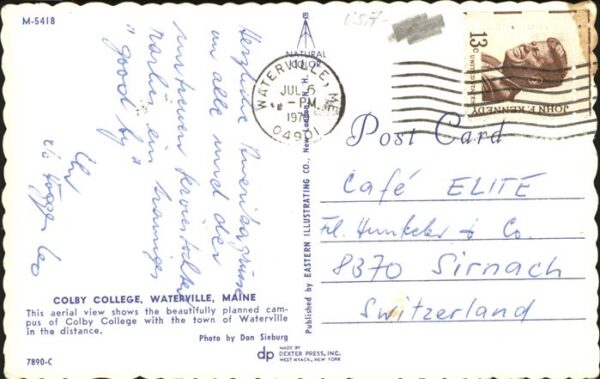 M-5418
USA
NATURAL
COLOR
WATERVILLE, ME
JUL 5
PM
04901
13c
UNITED STATES
JOHN F. KENNEDY
Post Card
Herzliche
an alle und der
ein
"good by"
Café ELITE
Frl. Hunkeler & Co.
8370 Sirnach
Switzerland
Published by EASTERN ILLUSTRATING CO., New London, N. H.
COLBY COLLEGE, WATERVILLE, MAINE
This aerial view shows the beautifully planned cam-
pus of Colby College with the town of Waterville
in the distance.
Photo by Don Sieburg
7890-C
dp
MADE BY
DEXTER PRESS, INC.
WEST NYACK, NEW YORK